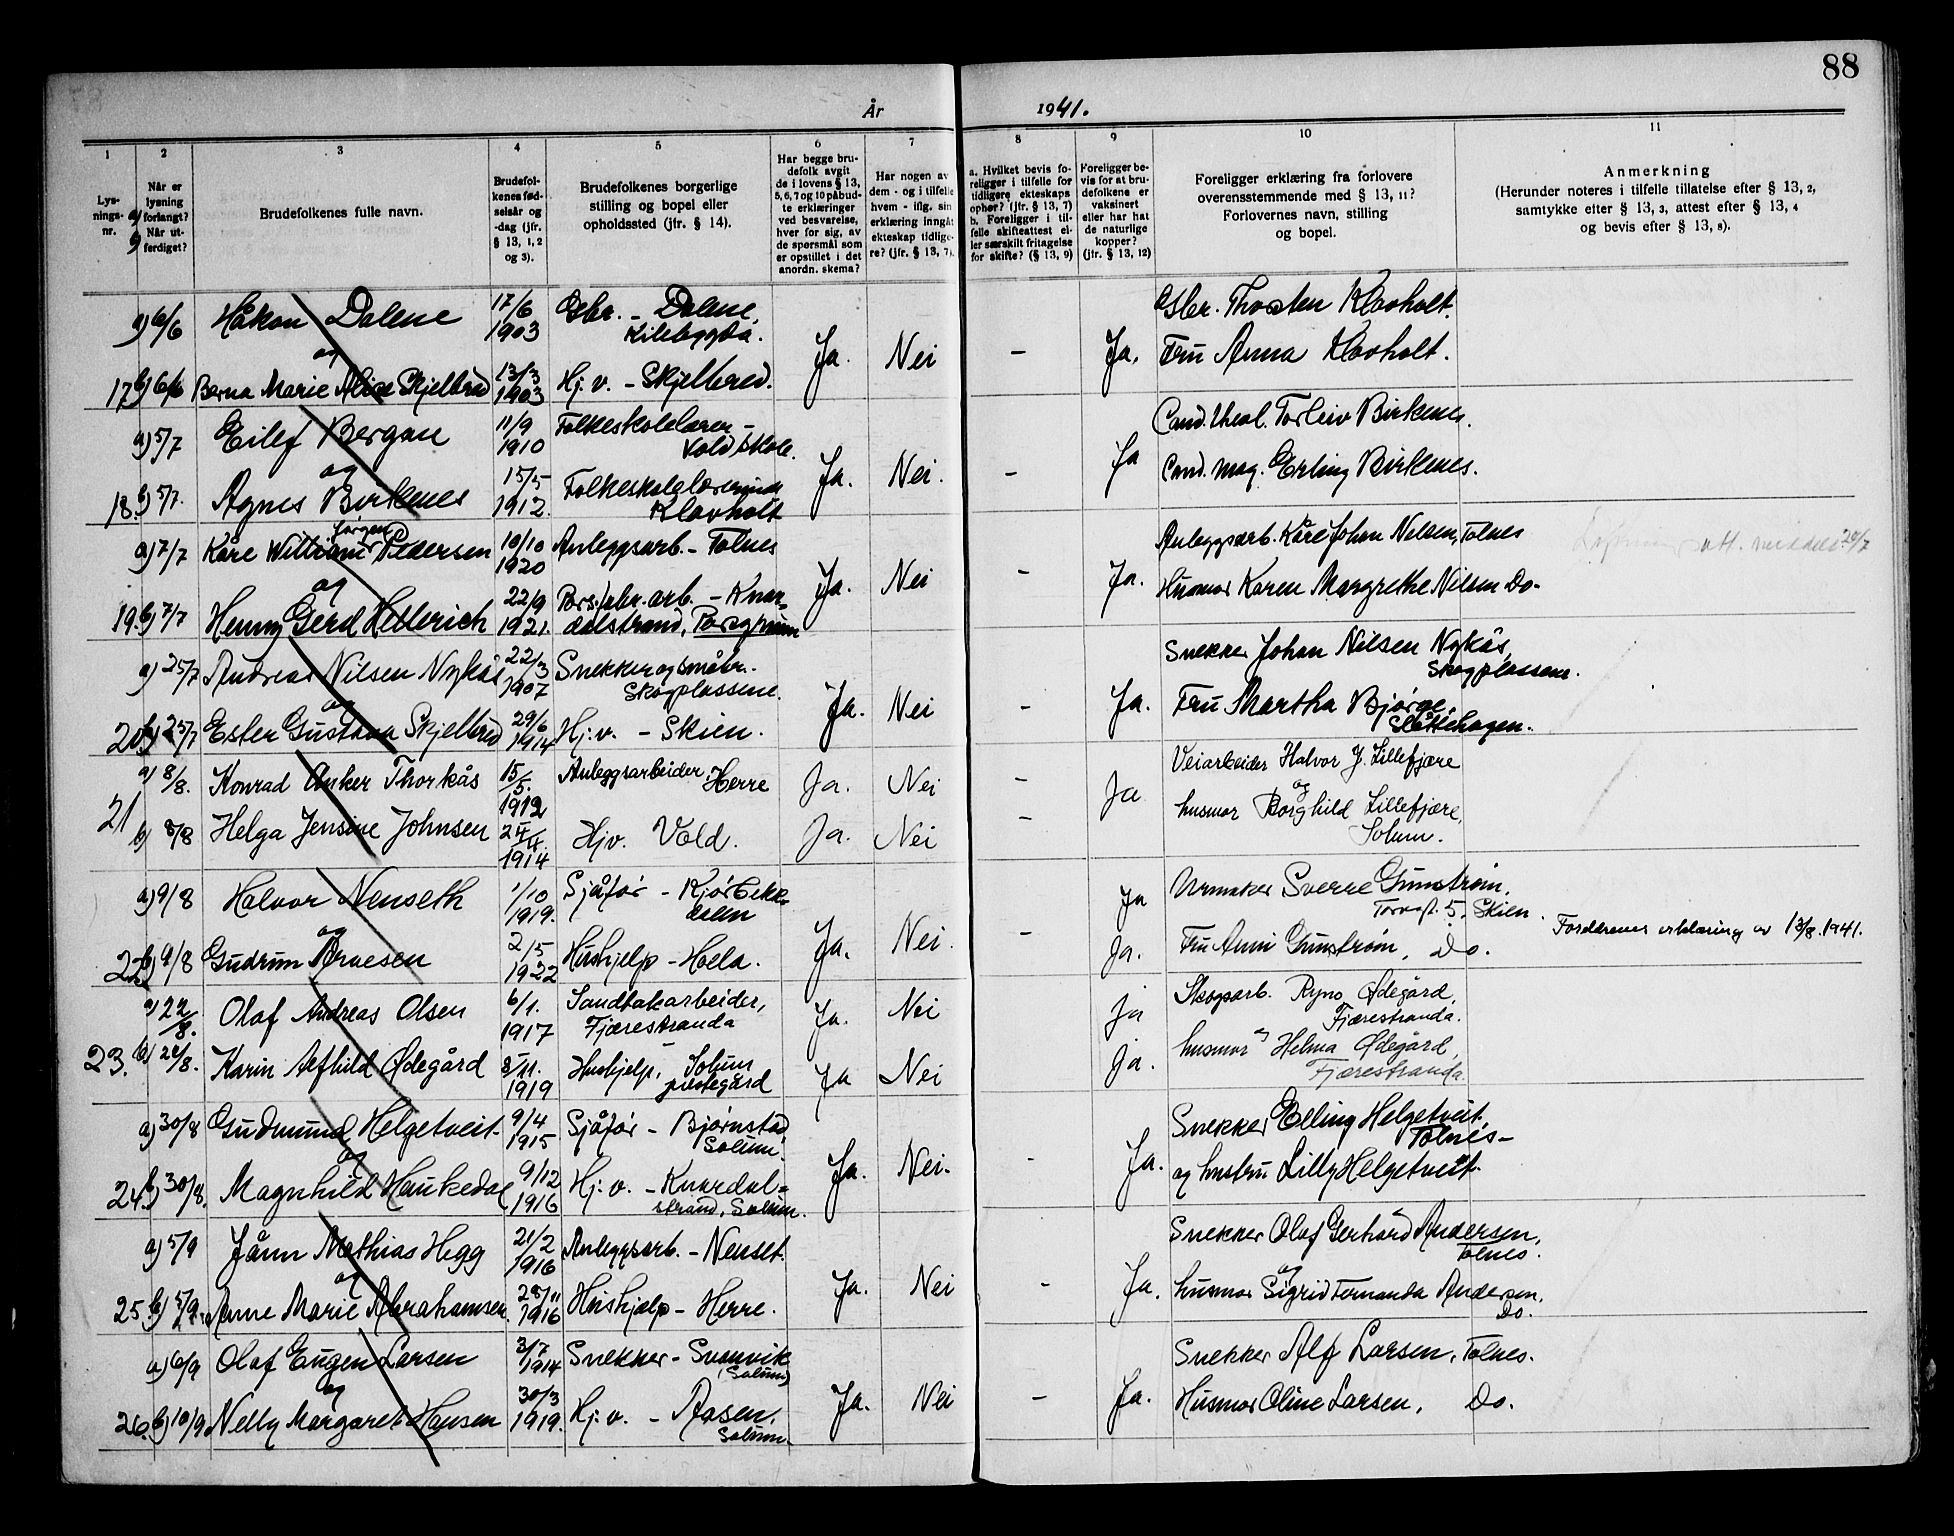 88
År 1941.
1 2 3 4 5 6 7 8 9 10 11
Lysnings-nr.
a) b) Når er lysning forlangt? Når utferdiget?
Brudefolkenes fulle navn.
Brudefolkenes fødselsår og -dag (jfr. § 13, 1, 2 og 3).
Brudefolkenes borgerlige stilling og bopel eller opholdssted (jfr. § 14).
Har begge brudefolk avgit de i lovens § 13, 5, 6, 7 og 10 påbudte erklæringer ved besvarelse, hver for sig, av de spørsmål som er opstillet i det anordn. skema?
Har nogen av dem - og i tilfelle hvem - iflg. sin erklæring inngått ekteskap tidligere? (jfr. § 13, 7).
a. Hvilket bevis foreligger i tilfelle for tidligere ekteskaps ophør? (jfr. § 13, 7) b. Foreligger i tilfelle skifteattest eller særskilt fritagelse for skifte? (§ 13, 9)
Foreligger bevis for at brudefolkene er vaksinert eller har hat de naturlige kopper? (jfr. § 13, 12)
Foreligger erklæring fra forlovere overensstemmende med § 13, 11? Forlovernes navn, stilling og bopel.
Anmerkning (Herunder noteres i tilfelle tillatelse efter § 13, 2, samtykke efter § 13, 3, attest efter § 13, 4 og bevis efter § 13, 8).
a) 6/6 Håkon Dalene 17/6 1903 Gbr. - Dalene, Kilebygda. Ja. Nei - Ja. Gbr. Thorsten Klovholt.
og
17 b) 6/6 Berna Marie Alise Skjelbred 13/3 1903 Hj.v. - Skjelbred. Fru Anna Klovholt.
a) 5/7 Eilef Bergan 11/9 1910 Folkeskolelærer - Vold skole. Ja. Nei. - Ja Cand. theol. Torleiv Birkenes.
og
18. b) 5/7. Agnes Birkenes 15/5 1912. Folkeskolelærerinde Klovholt Cand. mag. Erling Birkenes.
a) 7/7 Kåre William Jørgen Pedersen 10/10 1920 Anleggsarb. - Tolnes Ja. Nei - Ja. Anleggsarb. Kåre Johan Nilsen, Tolnes att. meddelt 20/7
og
19. b) 7/7 Henny Gerd Hellerich 22/9 1921. Pors.fabr.arb. - Knardalstrand, Porsgrunn Husmor Karen Margrethe Nilsen Do-
a) 25/7 Andreas Nilsen Nykås 22/3 1907 Snekker og småbr. Skogplassene. Ja. Nei - Ja. Snekker Johan Nilsen Nykås, Skogplassene.
og
20. b) 25/7 Ester Gustava Skjelbred 29/6 1914 Hj.v. - Skien. Fru Martha Bjørge, Slåttehagen.
21 a) 8/8. Konrad Anker Thorkås 15/5. 1912 Anleggsarbeider, Herre Ja. Nei - Ja Veiarbeider Halvor J. Lillefjære
og
b) 8/8 Helga Jensine Johnsen 24/4. 1914 Hjv. Vold. Ja. Nei - husmor Borghild Lillefjære, Solum.
a) 9/8 Halvor Nenseth 1/10 1919. Sjåfør - Kjørbekkdalen Ja. Nei. - Ja Urmaker Sverre Gunstrøm, Torvgt. 5, Skien.
og
22. b) 9/8 Gudrun Arnesen 2/5 1922 Hushjelp - Hoela. Ja. Fru Anni Gunstrøm, Do. Forldrenes erklæring av 13/8.1941.
a) 22/8. Olaf Andreas Olsen 6/1. 1917 Sandtakarbeider, Fjærestranda Ja. Nei ja Skogsarb. Ryno Ødegård, Fjærestranda.
og
23. b) 22/8. Karin Alfhild Ødegård 8/11. 1919 Hushjelp, Solum prestegård Ja Nei ja. husmor Helma Ødegård, Fjærestranda.
a) 30/8 Gudmund Helgetveit 9/4 1915 Sjåfør - Bjørnstad Solum. Ja. Nei. - Ja. Snekker Elling Helgetveit, Tolnes-
og
24. b) 30/8. Magnhild Haukedal 9/12 1916 Hj.v. - Knardalstrand, Solum. og hustru Lilly Helgetveit.
a) 5/9 Jånn Mathias Hegg 21/2 1916 Anleggsarb. - Nenset. Ja. Nei - Ja. Snekker Olaf Gerhard Andersen, Tolnes.
og
25. b) 5/9. Anne Marie Abrahamsen. 28/11 1916 Hushjælp - Herre. husmor Sigrid Fernanda Andersen, Do.
a) 6/9 Olaf Eugen Larsen 3/7 1914 Snekker - Svanvik (Solum) Ja. Nei - Ja. Snekker Alf Larsen, Tolnes.
og
26. b) 10/9 Nelly Margaret Hansen 30/3 1919. Hj.v. - Aasen, Solum. Husmor Oline Larsen, Do.